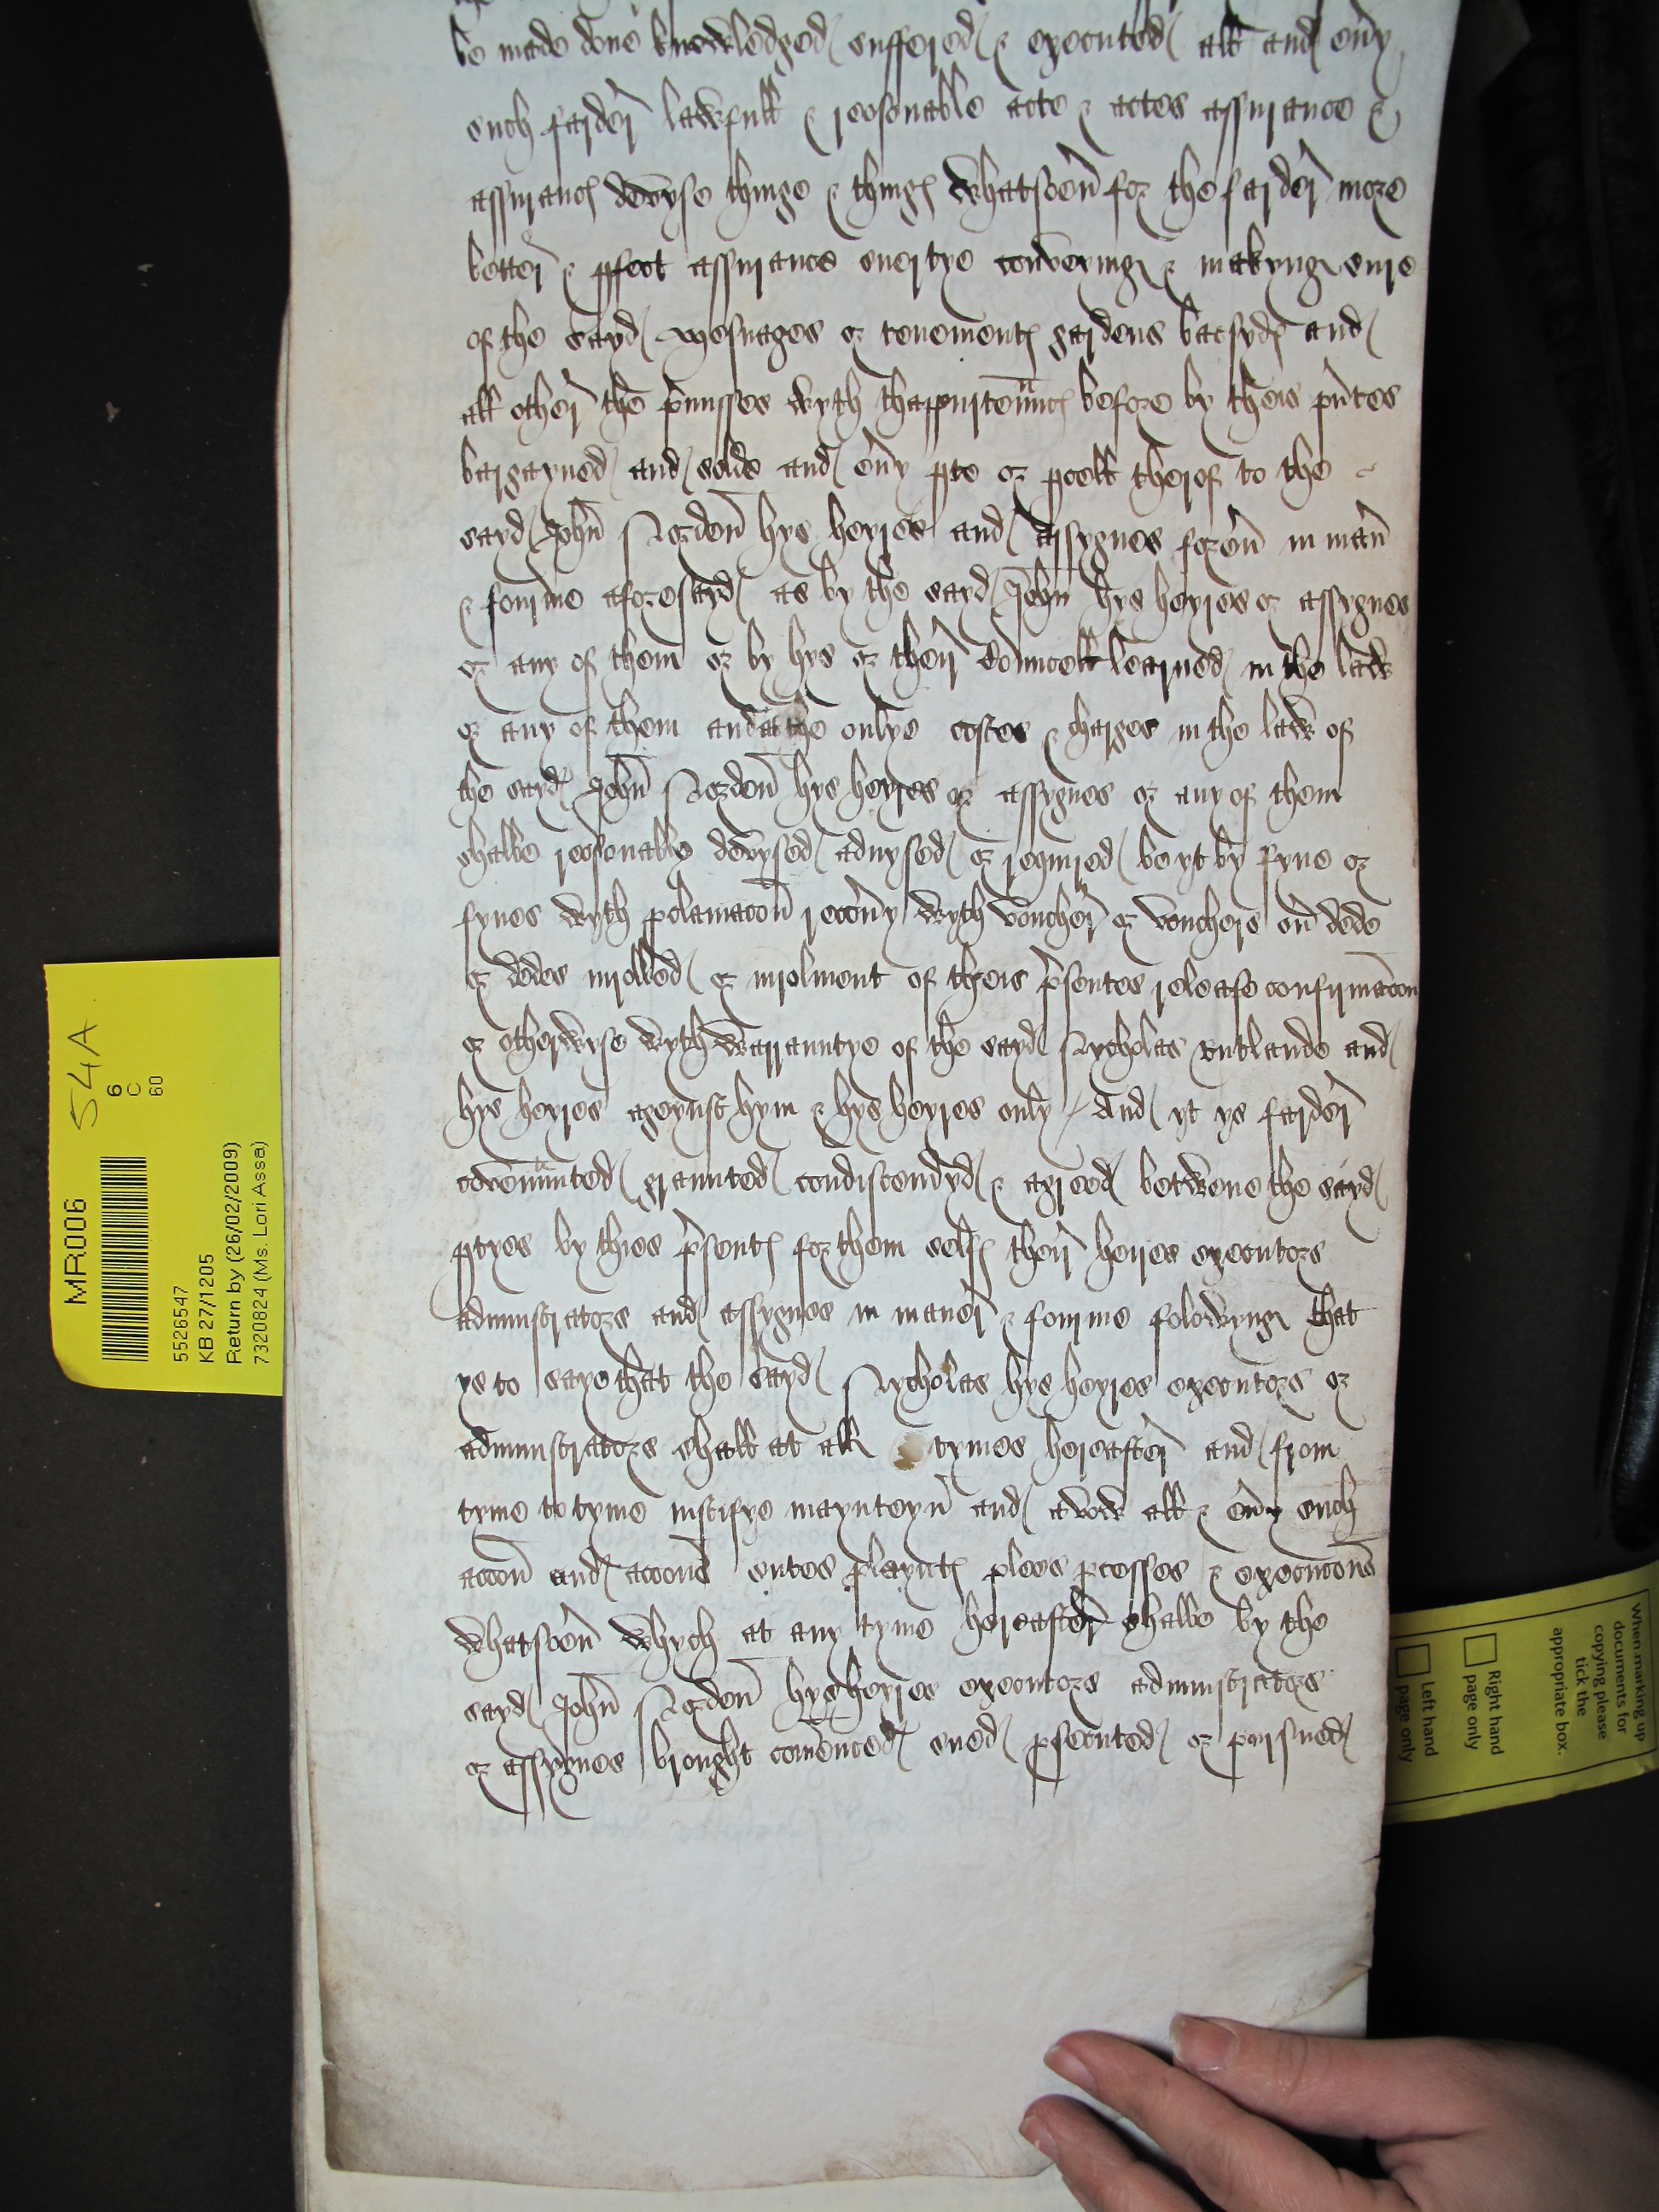 be made done knowledged suffered & executed all and eny
such farder lawfull & reosonable acte & actes assurance &
assuranc devyse thinge & thing whatsoeu for the farder more
better & pfect assurance suertye conveying & makyng sure
of the sayd mesuages or tenement gardens bacsyd and
all other the pmisses wyth thappurtennc before by theis pntes
bargayned and solde and eny pte or pcell therof to the
sayd John Nordon hys heyres and assygnes foreu in man
& fourme aforesayd as by the sayd John hys heyres or assygnes
or any of them or by hys or their Councell learned in the law
or any of them and at the onlye costes & charges in the law of
the sayd John Nordon hys heyres or assygnes or any of them
shalbe reosonably devysed aduysed or requyred be yt by fyne or
fynes wyth pclamacon recoüy wyth voucher or vouchers on dede
or dedes inrolled or inrolment of theis psentes release confirmacon
or otherwyse wyth warrauntye of the sayd Nycholas rutlande and
hys heyres ageynst hym & hys heyres only / And yt ys farder
covenunted graunted condiscendyd & agreed betwene the sayd
ptyes by thies psent for them self their heires executors
administrators and assygnes in maner & fourme folowyng that
ys to saye that the sayd Nycholas hys heyres executors or
administrators shall at all tymes hereafter and from
tyme to tyme iustifye maynteyn and avow all & euy such
accon and accons sutes playnt plees pcesses & execucons
whatsoeu whych at any tyme hereafter shalbe by the
sayd John Nordon hys heyres executors administrators
or assygnes brought comenced sued psecuted or pursued
MR006
54A
6
C
60
5526547
KB 27/1205
Return by (26/02/2009)
7320824 (Ms. Lori Assa)
When marking up
documents for
copying please
tick the
appropriate box.
Right hand
page only
Left hand
page only